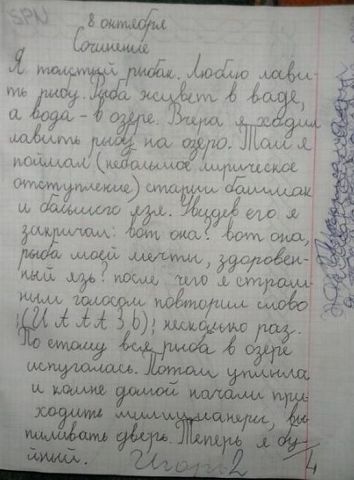 SPN
8 октября
Сочинение
Я толстый рыбак. Люблю лави-
ть рыбу. Рыба жывет в ваде,
а вода - в озере. Вчера я ходил
лавить рыбу на озеро. Там я
поймал (небальшое лирическое
отступление) старый балшмак
и бальшого язя. Увидев его я
закричал: вот она! вот она,
рыба моей мечты, здоровен-
ный язь! после чего я страш-
ным голосом повторил слово
;(И А А А З, Ь); несколько раз.
По етому вся рыба в озере
испугалась. Потом уплыла
и комне домой начали при-
ходить милицианеры, вы-
пиливать дверь. Теперь я бу-
йный. Игорь 2 / 4